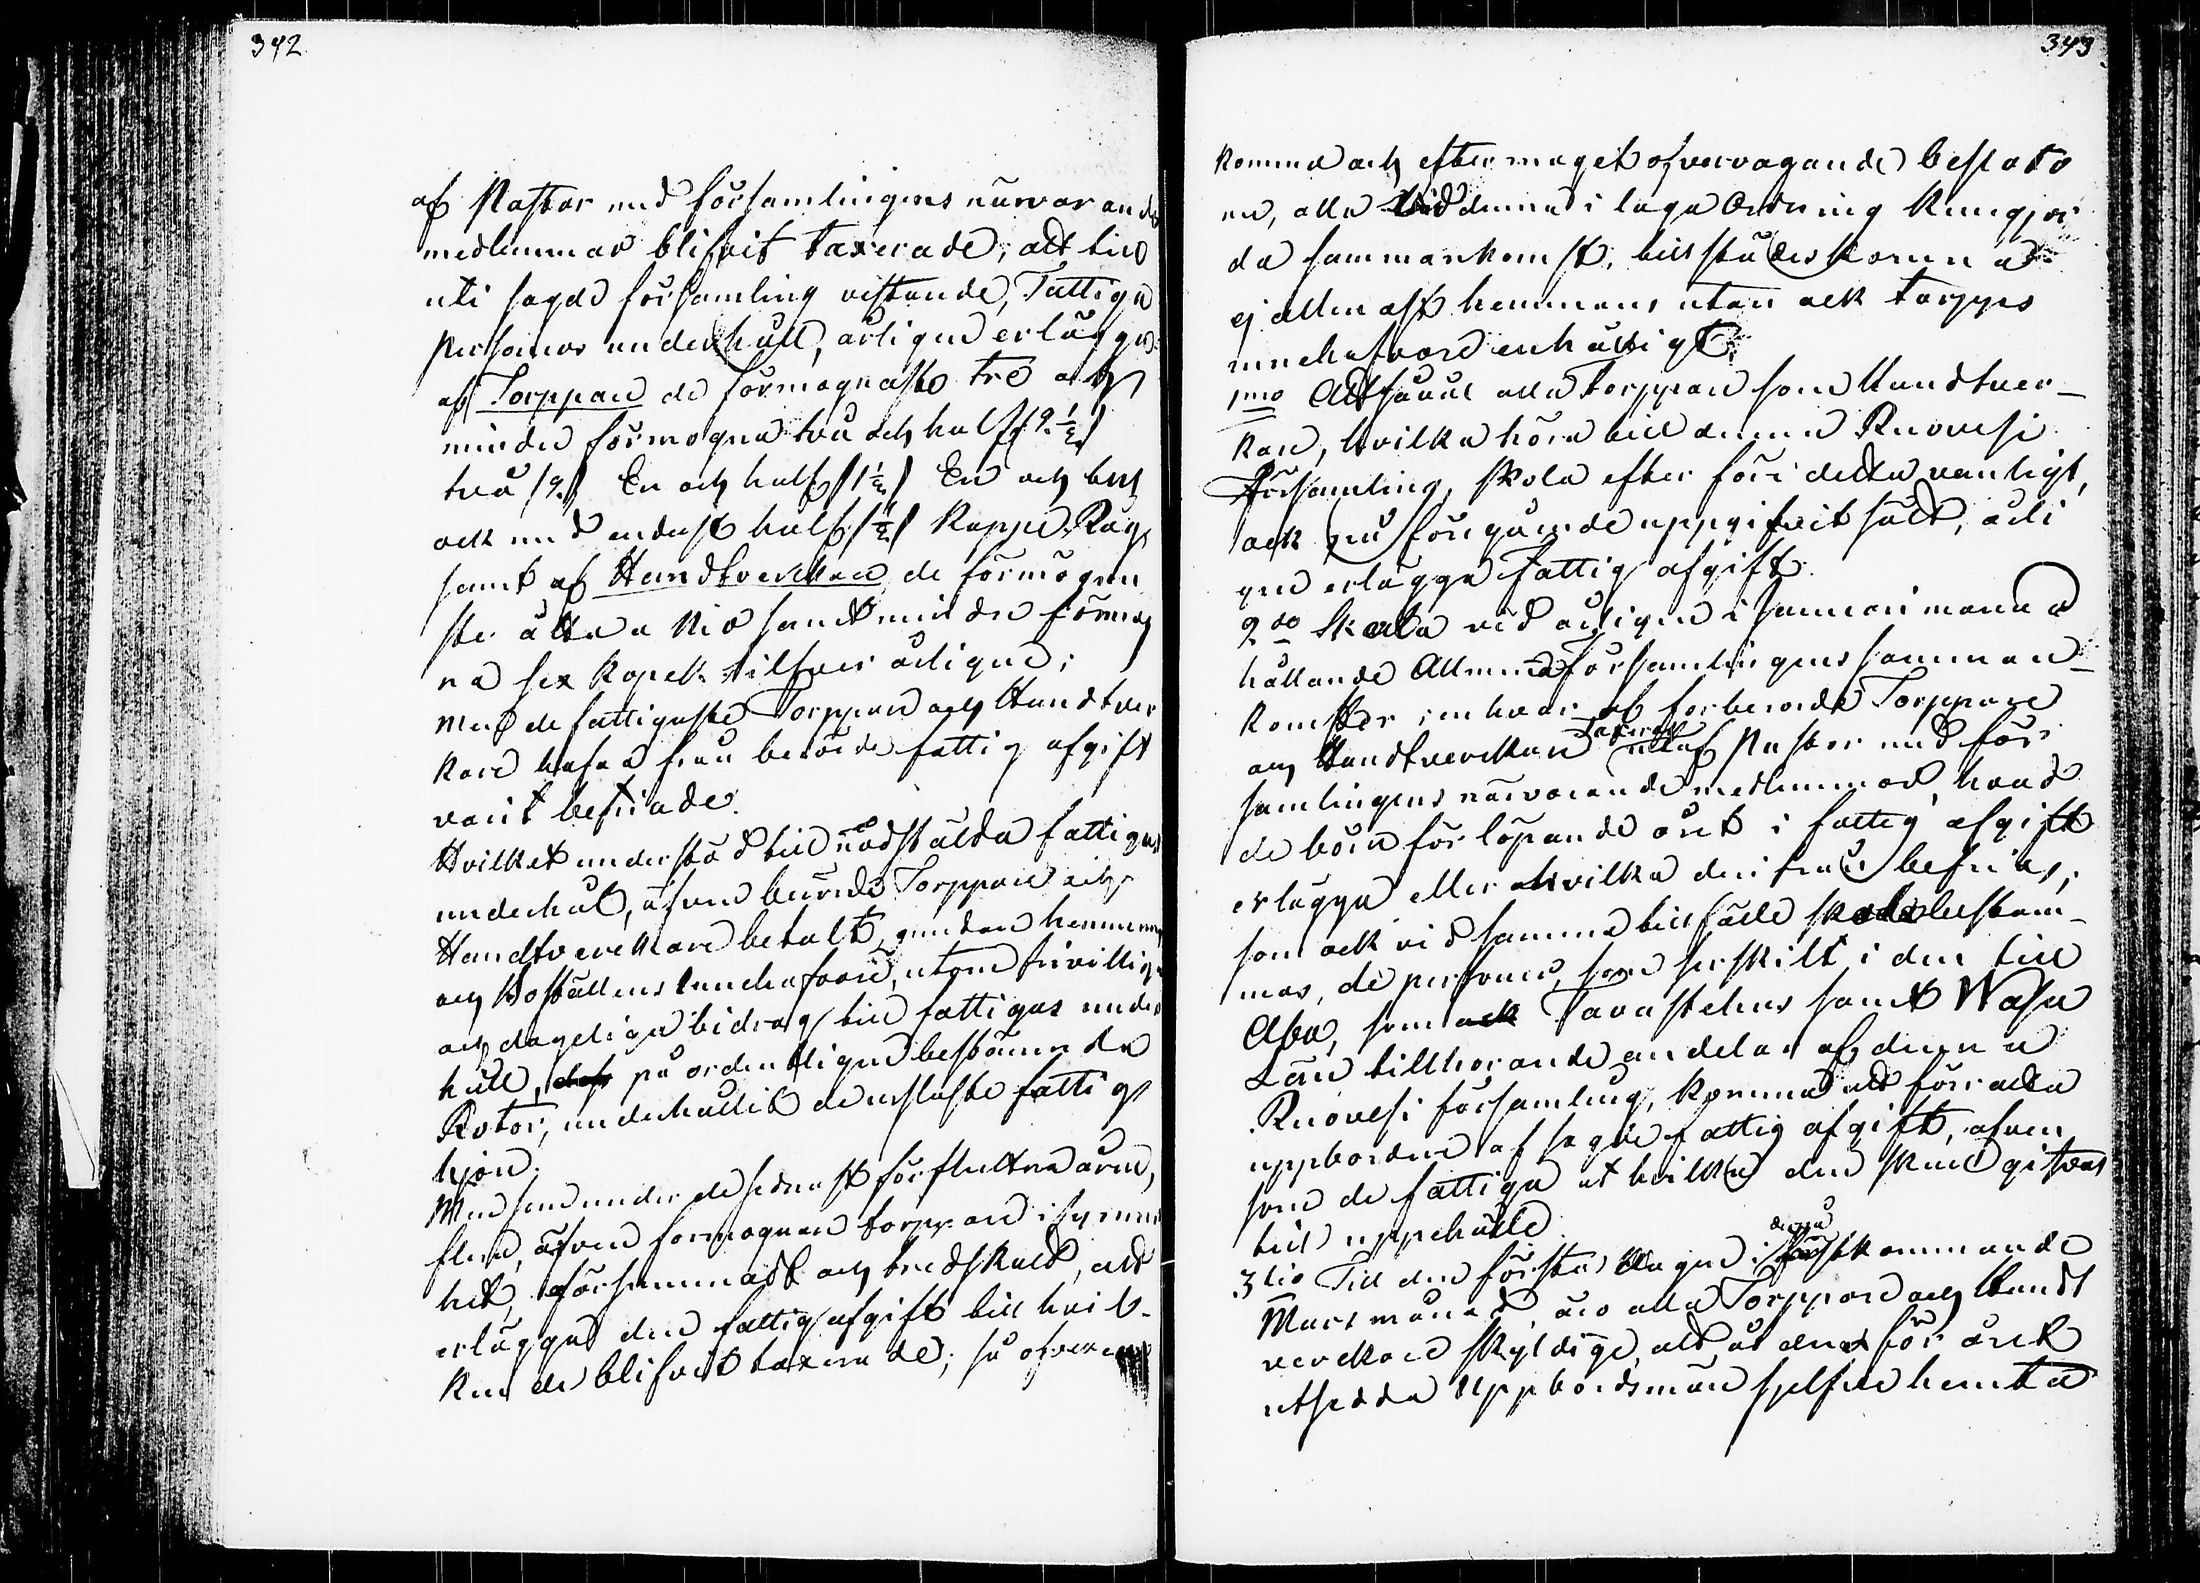 342
af Pastor med församlingens närvarande
medlemmar blifvit taxerade, att till
uti sagde församling vistande, Fattiga
Personers underhåll, årligen erlägga
af Torppare de förmögnaste tre och
mindre förmögna två och half /2 1/2/
två /2/ En och half /1 1/2/ En och
ock endast half /1/2/ Kappe Råg,
samt af Handtverkare de förmögna
ste åtta a nio samt mindre förmög
na sex kopek silfver årligen;
Men de fattigaste Torppare och Handtver
kare hafva från berörde fattig afgift
varit befriade.
Hvilket understöd till nödstälda fattigas
underhåll, äfven berörde Torppare och
Handtverckare betalt, ehuru hemmans
och Boställens innehafvare, utom frivilliga
och dageliga bidrag till fattigas under
håll, på ordentligen bestämmda
Rotor, underhållit de uslaste fattig
hjon.
Men som under de sednast förflutna åren,
flere, äfven förmögnare torppare i synner
het, försummadt och tredskats, att
erlägga den fattig afgift till hvil-
ken de blifvit taxerade; så öfverens
343
komma och efter moget öfvervägande besluto
nu, alla vid denna i laga Ordning kungjor
da sammankomst, tillstädeskomne
ej allenast hemmans utan ock torpps
innehafvare enhälligt;
1mo Att såväl alla Torppare som Handtver-
kare, hvilka höra till denna Ruovesi
Församling, skola efter förr detta vanligt,
ock nu föregående uppgifvit sätt, årli
gen erlägga Fattig afgift.
2do Skola vid årligen i Januari månad
hållande Allmänna Församlingens samman-
komster, enhvar af förberörde Torppare
och Handtverckare taxeras af Pastor med för
samlingens närvarande medlemmar, hvad
de böra för löpande året i fattig afgift
erlägga eller hvilka derifrån befrias;
som ock vid samma tillfälle skola bestäm-
mas, de personer, som serskilt i den till
Åbo, som ock Tavastehus samt Wasa
Län tillhörande andelar af denna
Ruovesi församling, komma att förrätta
uppbörden af sagde fattig afgift, äfven
som de fattiga åt hvilka den skall gifvas
till uppehälle.
3tio Till den första dagen i derpå följkommande
Mars månad, äro alla Torppare och Handt
verckare skyldige, att åt den för året
utsedda Uppbördsman sjelfve hemta